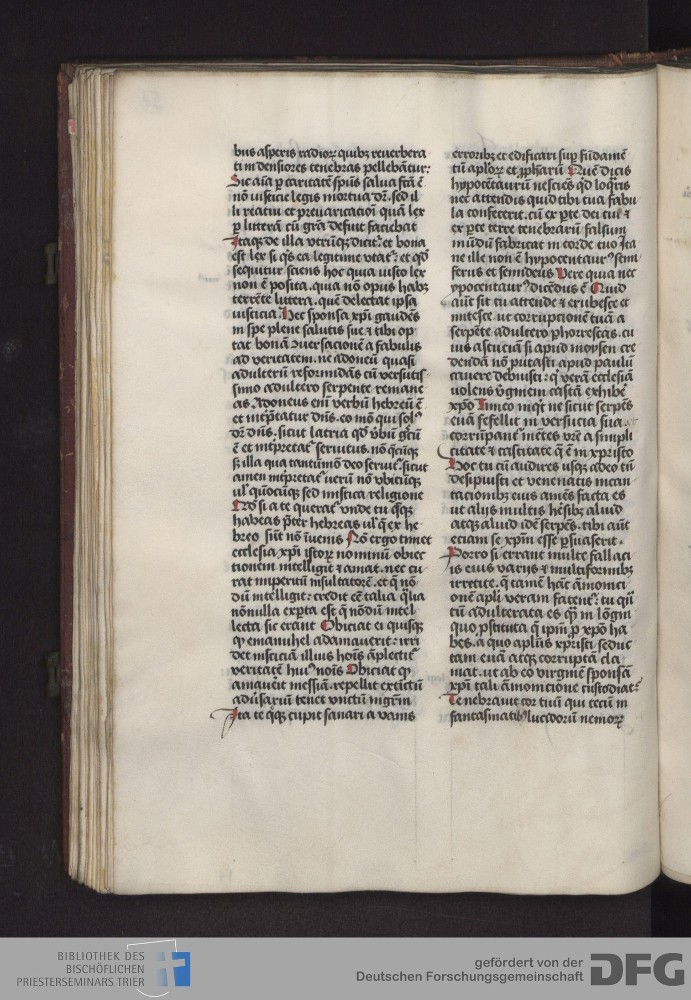 bus asperis radioꝝ quibꝫ reuerbera
ti in densiores tenebras pellebãtur:
Sic aĩa ꝑ caritatẽ spũs salua fcã ẽ
nõ iusticie legis mortua dr̃. sed il
li reatui et preuaricatiõi quã lex
ꝑ litterã cũ gr̃a defuit faciebat
Itaqꝫ de illa vtrũqꝫ dicit᷑: et bona
est lex si q̃s ea legitime vtat᷑: et qd̃
sequitur sciens hoc quia iusto lex
non ẽ posita. quia nõ opus habꝫ
terrẽte littera. quẽ delectat ipsa
iusticia. Hec sponsa xp̃i gaudẽs
in spe plene salutis sue ⁊ tibi op
tat bonã ꝯuersacionẽ a fabulis
ad veritatem. ne adoneũ quasi
adulterũ reformidãs cũ versutis
simo adultero serpente remane
as Adoneus eni᷑ verbũ hebreũ ẽ
et interp̃tatur dñs. eo mõ qui solꝰ
dr̃ dñs. sicut latria qd̃ v̉bũ gr̃cũ
ẽ et interpretat᷑ seruitus. nõ q̃cũqꝫ
sꝫ illa qua tantũmõ deo seruit᷑. sicut
amen interpretat᷑ uerũ nõ vbicũqꝫ
ul̉ quocũqꝫ sed mistica religione
Qd̃ si a te querat᷑ vnde tu q̃sqꝫ
habeas p̃ter hebreas ul̉ q̃ ex he
breo sũt nõ ĩuenis Nõ ergo timet
ecclesia xp̃i istoꝝ nominũ obiec
tionem intelligit ⁊ amat. nec cu
rat imperitũ insultatorẽ. et q̃ nõ
dũ intelligit: credit eẽ talia q̃lia
nõnulla exp̃ta est q̃ nõdũ intel
lecta sic erãnt Obiciat ei quisqꝫ
ꝙ emanuhel adamauerit: irri
det insticiã illius hoĩs ãplectit᷑
veritatẽ huiꝰ noĩs Obiciat ꝙ
amauerit messiã. repellit extĩctũ
adũsariũ tenet vnctũ mgr̃m
Ita te q̃qꝫ cupit sanari a vanis
erroribꝫ et edificari suꝑ fũdamẽ
tũ apl̃oꝝ et ꝓphãrũ Quẽ dicis
hypocẽtaurũ nescieẽs qd̃ loq̃ris
nec attendis quid tibi tua fabu
la confecerit. cũ ex ꝑte dei tui ⁊
ex ꝑte terre tenebrarũ falsum
mũdũ fabricat in corde tuo Ita
ne ille non ẽ hypocentaurꝰ semi
ferus et semideus Vere quia nec
ypocentaurꝰ dicẽdus ẽ Quid
aũt sit tu attende ⁊ erubesce et
mitesce ut corrupcionẽ tuã a
serpẽte adultero ꝑhorrescas. cu
ius astuciã si apud moysen cre
dendã nõ putasti apud paulũ
cauere debuisti: q̃ verã ecclesiã
uolens v̉ginem castã exhibẽ
xpõ Timeo inqt̃ ne sicut serpẽs
euã fefellit in versucia sua.
corrũpant᷑ mẽtes vrẽ a simpli
citate ⁊ castitate q̃ ẽ in xpristo
Hoc tu cũ audires usqꝫ adeo tũ
desipuisti et venenatis incan
tacionibꝫ eius amẽs facta es
ut alijs multis hẽsibꝫ aliud
atqꝫ aliud idẽ serpẽs. tibi aũt
eciam se xpm̃ esse ꝑsuaserit.
Porro si errant multe fallaci
is eius varijs ⁊ multiformibꝫ
irretite. q̃ tamẽ hãc ãmonici
onẽ apl̃i veram fatent᷑: tu qñ
tũ adulterata es q̃m in lõgin
quo ꝓstituta q̃ ipm̃ ꝓ xpõ ha
bes. a quo apl̃us xpristi seduc
tam euã atqꝫ corruptã cla
mat. ut ab eo virginẽ sponsã
xp̃i tali ãmonicione custodiat᷑
Tenebrauit cor tuũ qui tecũ in
fantasmatibꝰ lucidorũ nemorꝝ
BIBLIOTHEK DES
BISCHÖFLICHEN
PRIESTERSEMINARS TRIER
gefördert von der
Deutschen Forschungsgemeinschaft
DFG